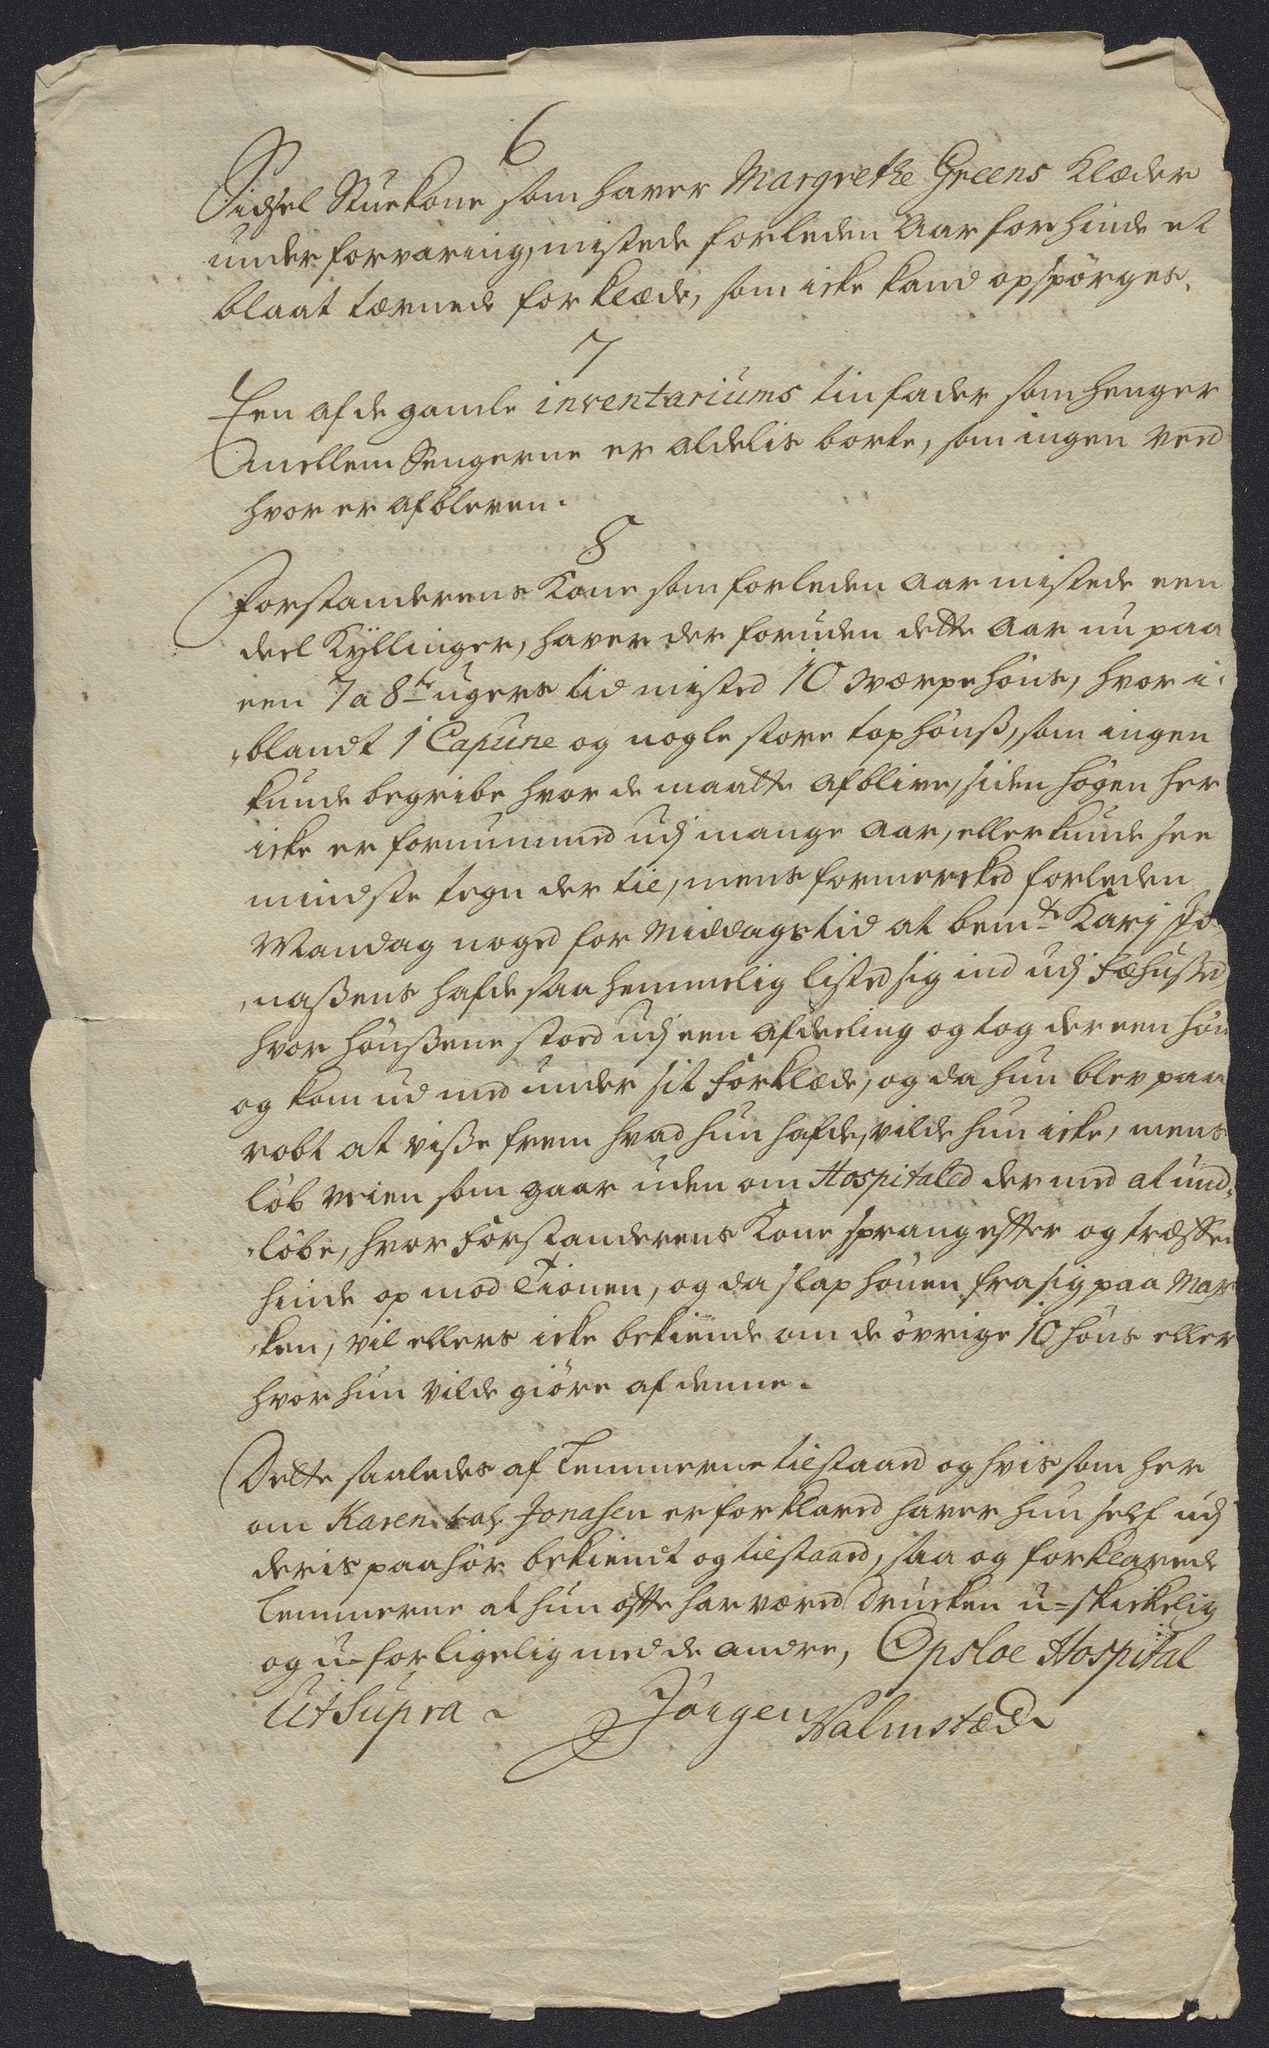 6
Sidsel Stuekone som haver Margrethe Greens Klæder
under forvaring, mistede forleden Aar for hinde et
blaat tærnede forklæde, som icke kand opspörges.
7
Een af de gamle inventariums tinfader som henger
mellem Sengerne er aldelis borte, som ingen veed
hvor er afbleven.
8
Forstanderens Kone som forleden Aar mistede een
deel Kyllinger, haver der foruden dette Aar nu paa
een 7 a 8te ugers tid misted 10 værpehöns, hvor i-
blandt 1 Capune og nogle store tophönß, som ingen
kunde begribe hvor de maatte afblive, siden högen her
icke er fornummed udj mange Aar, eller kunde see
mindste tegn der til, mens formercked forleden
Mandag noged for Middagstid at bemte Karj Jo-
naßens hafde saa hemmelig listed sig ind udj Fæhußed
hvor hönßene stoed udj een afdeeling og tog der een hön
og kom ud med under sit Forklæde, og da hun blev paa
robt at viße frem hvad hun hafde, vilde hun icke, mens
löb veien som gaar uden om Hospitaled der med at und-
löbe, hvor Forstanderens Kone sprang efter og træffed
hinde op mod Tionen, og da slap hönen fra sig paa Mar-
ken, vil ellers icke bekiende om de övrige 10 höns eller
hvor hun vilde giöre af denne.
Dette saaledes af Lemmerne tilstaaed og hvis som her
om Karen Jonasen er forklared haver hun self udj
deris paahör bekiendt og tilstaaed, saa og forklarede
Lemmerne at hun offte har væred drucken u-skickelig
og u-forligelig med de andre, Opsloe Hospital
Ut Supra.
Jörgen Halmstæd